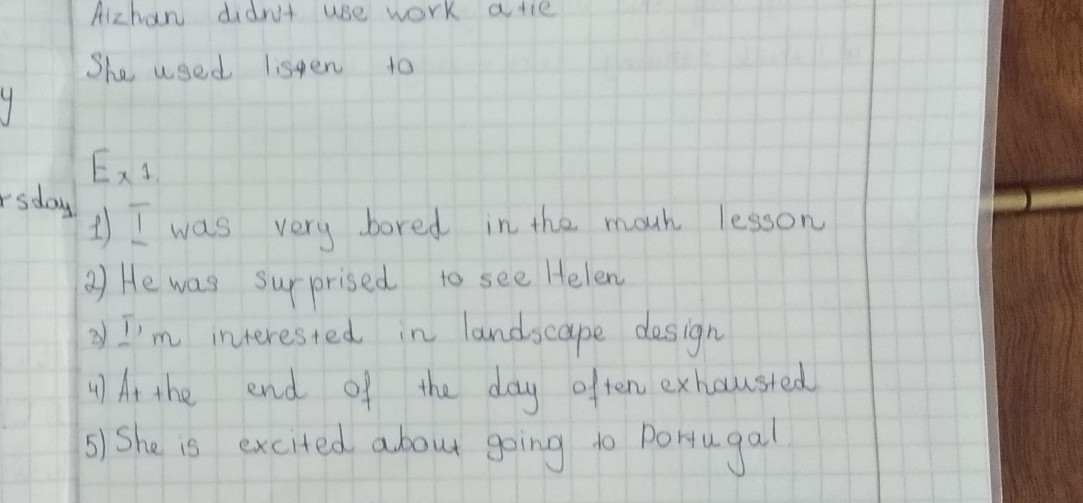 Aizhan didn't use work a tie
She used listen to
y
Ex 1.
rsday
1) I was very bored in the math lesson
2) He was surprised to see Helen
3) I'm interested in landscape design
4) At the end of the day often exhausted
5) She is excited about going to Portugal.